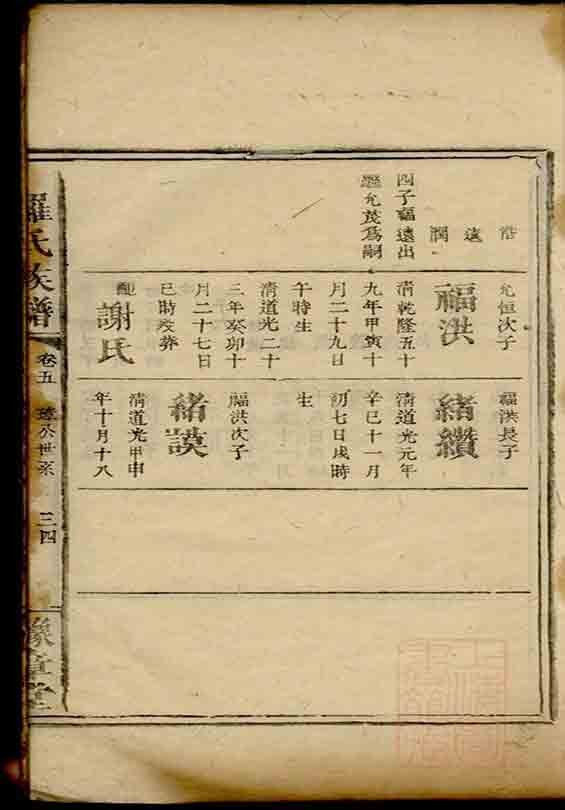 浩 遠 潤
四子福遠出
繼允茂爲嗣
允恒次子
福洪
清乾隆五十
九年甲寅十
月二十九日
午時生
清道光二十
三年癸卯十
月二十七日
巳時歿葬
配
謝氏
福洪長子
緒纘
清道光元年
辛巳十一月
初七日戌時
生
福洪次子
緒謨
清道光甲申
年十月十八
羅氏族譜
卷五
公世系
三四
豫章堂